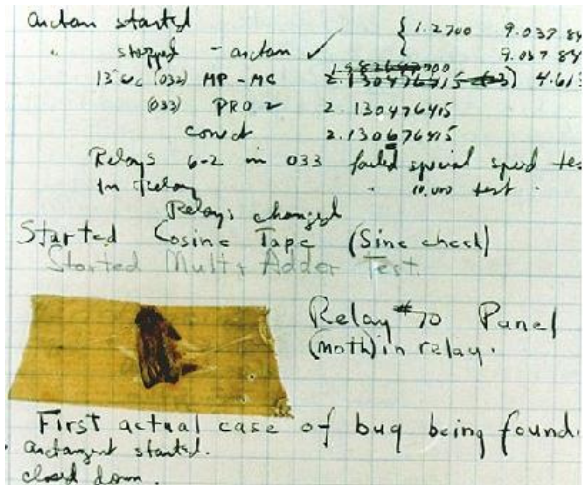 arctan started { 1.2700 9.037 84
" stopped - arctan ✓ 9.037 84
13" uc (032) MP - MC 2.130476415 4.615
(033) PRO 2 2.130476415
convct 2.130676415
Relays 6-2 in 033 failed special speed tes
In Relay " 10.000 test.
Relays changed
Started Cosine Tape (Sine check)
Started Mult + Adder Test.
Relay #70 Panel
(moth) in relay.
First actual case of bug being found.
arctangent started.
closed down.